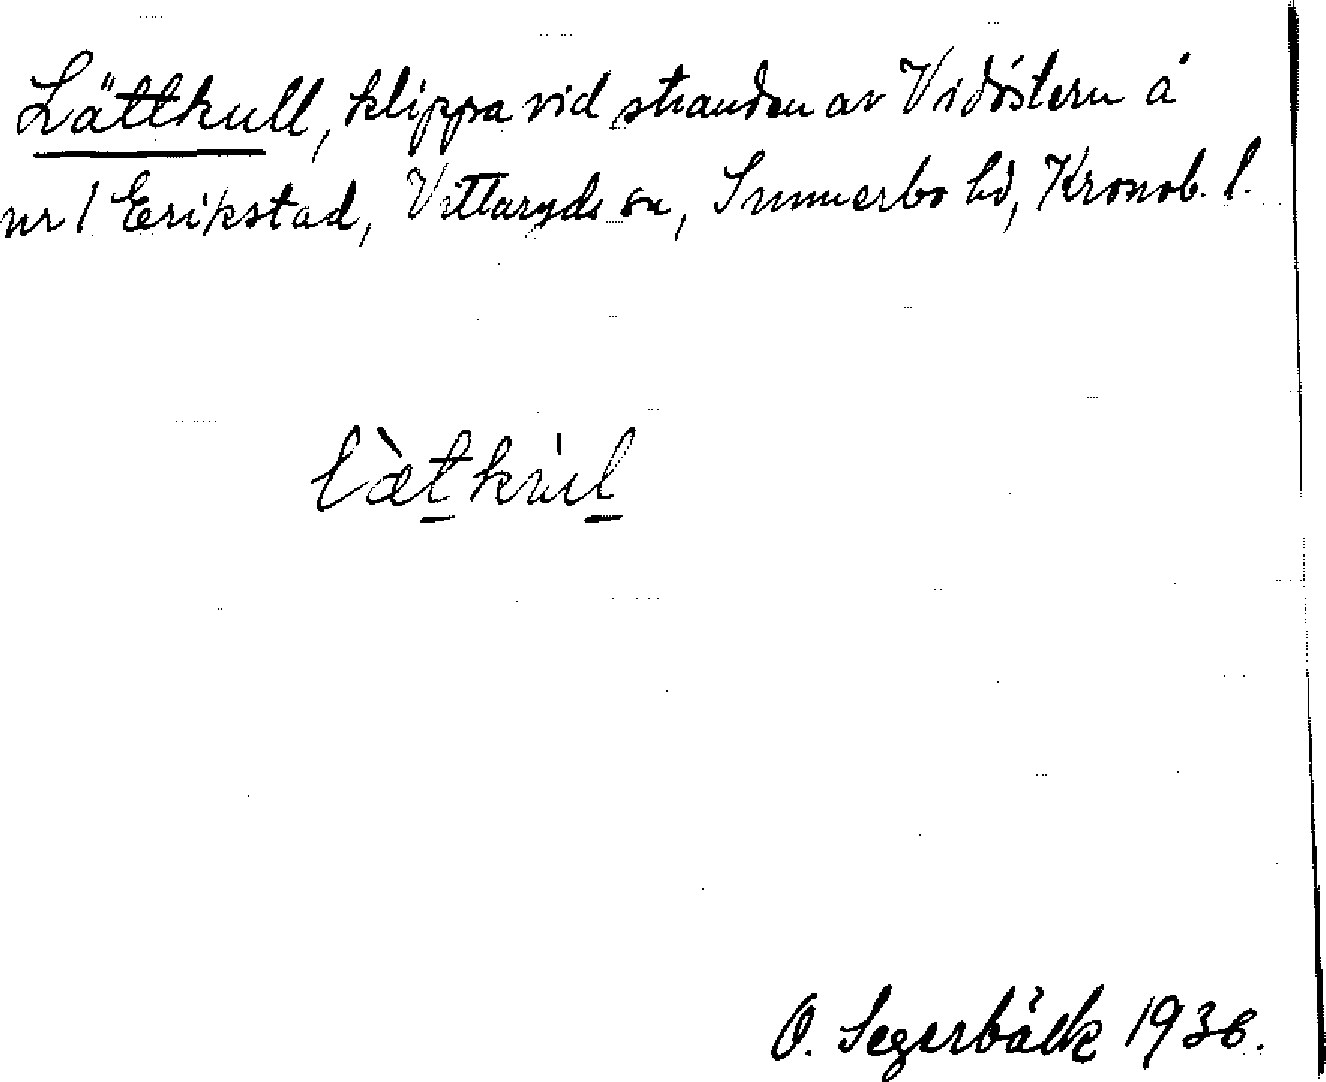 Lättkull, klippa vid stranden av Vidöstern å
nr 1 Erikstad, Vittaryds sn, Sunnerbo hd, Kronob. l.
læ̀tkùl
O. Segerbäck 1936.